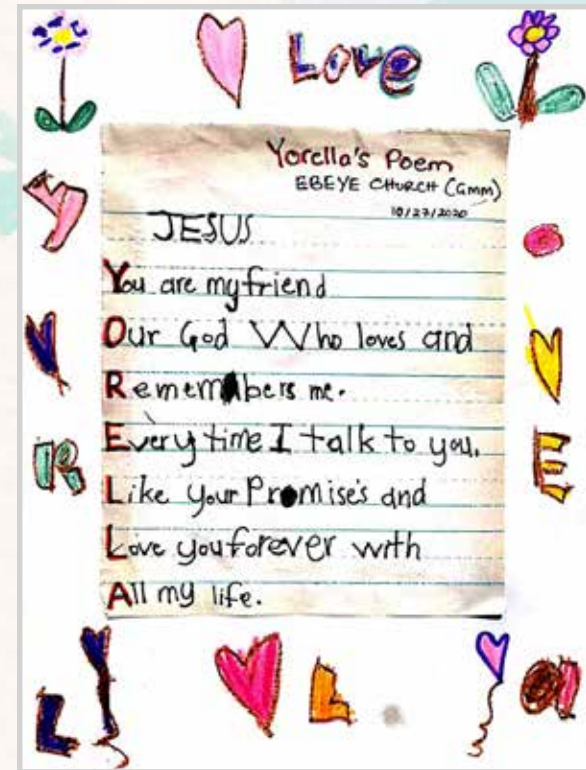 Love
Yorella's Poem
EBEYE CHURCH (GMM)
10/27/2020
JESUS
You are my friend
Our God Who loves and
Remembers me.
Every time I talk to you.
Like your Promise's and
Love you forever with
All my life.
Y
R E
L L a